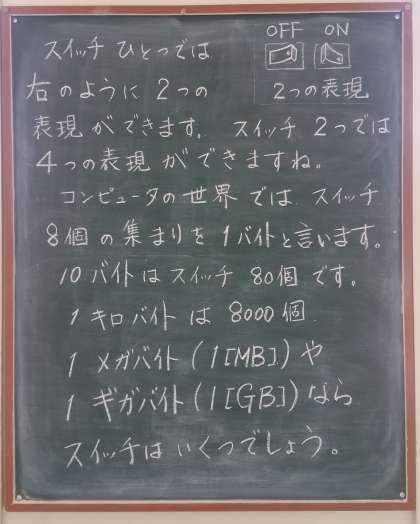 スイッチ ひとつでは
OFF ON
右のように 2つの
2つの表現
表現ができます。 スイッチ 2つでは
4つの表現 ができますね。
コンピュータの世界 では スイッチ
8個の集まりを 1バイトと言います。
10バイトはスイッチ 80個です。
1キロバイト は 8000個
1メガバイト(1[MB])や
1ギガバイト(1[GB])なら
スイッチはいくつでしょう。